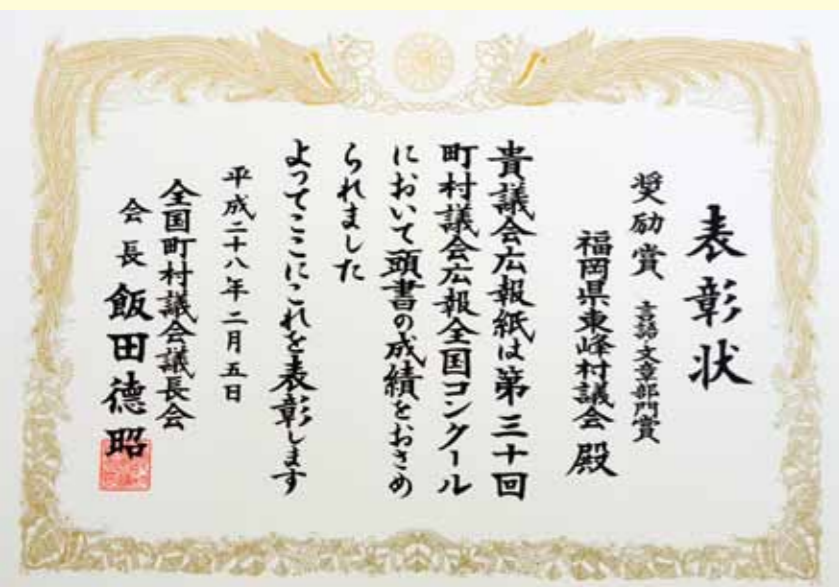 表彰状
奨励賞 言語・文章部門賞
福岡県東峰村議会 殿
貴議会広報紙は第三十回
町村議会広報全国コンクール
において頭書の成績をおさめ
られました
よってここにこれを表彰します
平成二十八年二月五日
全国町村議会議長会
会長 飯田徳昭